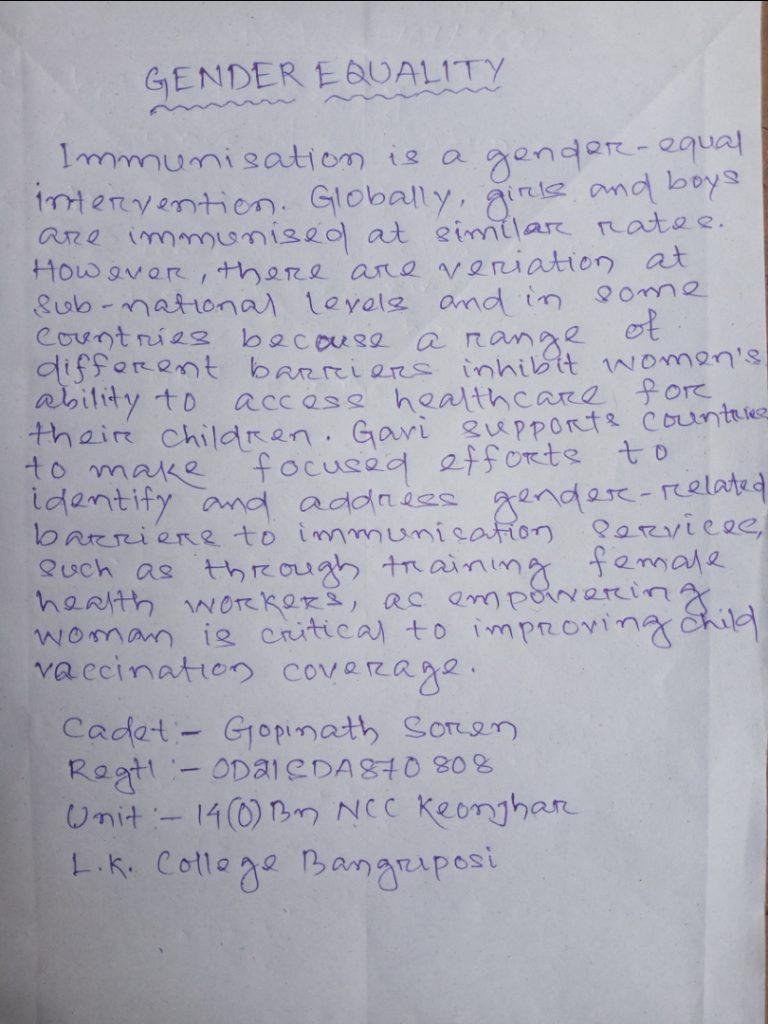 GENDER EQUALITY
Immunisation is a gender-equal
intervention. Globally, girls and boys
are immunised at similar rates.
However, there are veriation at
sub-national levels and in some
countries becouse a range of
different barriers inhibit women's
ability to access healthcare for
their children. Gavi supports countries
to make focused efforts to
identify and address gender-related
barriers to immunisation services,
such as through training female
health workers, as empowering
woman is critical to improving child
vaccination coverage.
Cadet:- Gopinath Soren
Regtl:- OD21SDA870808
Unit:- 14(O) Bn NCC Keonjhar
L.K. College Bangriposi